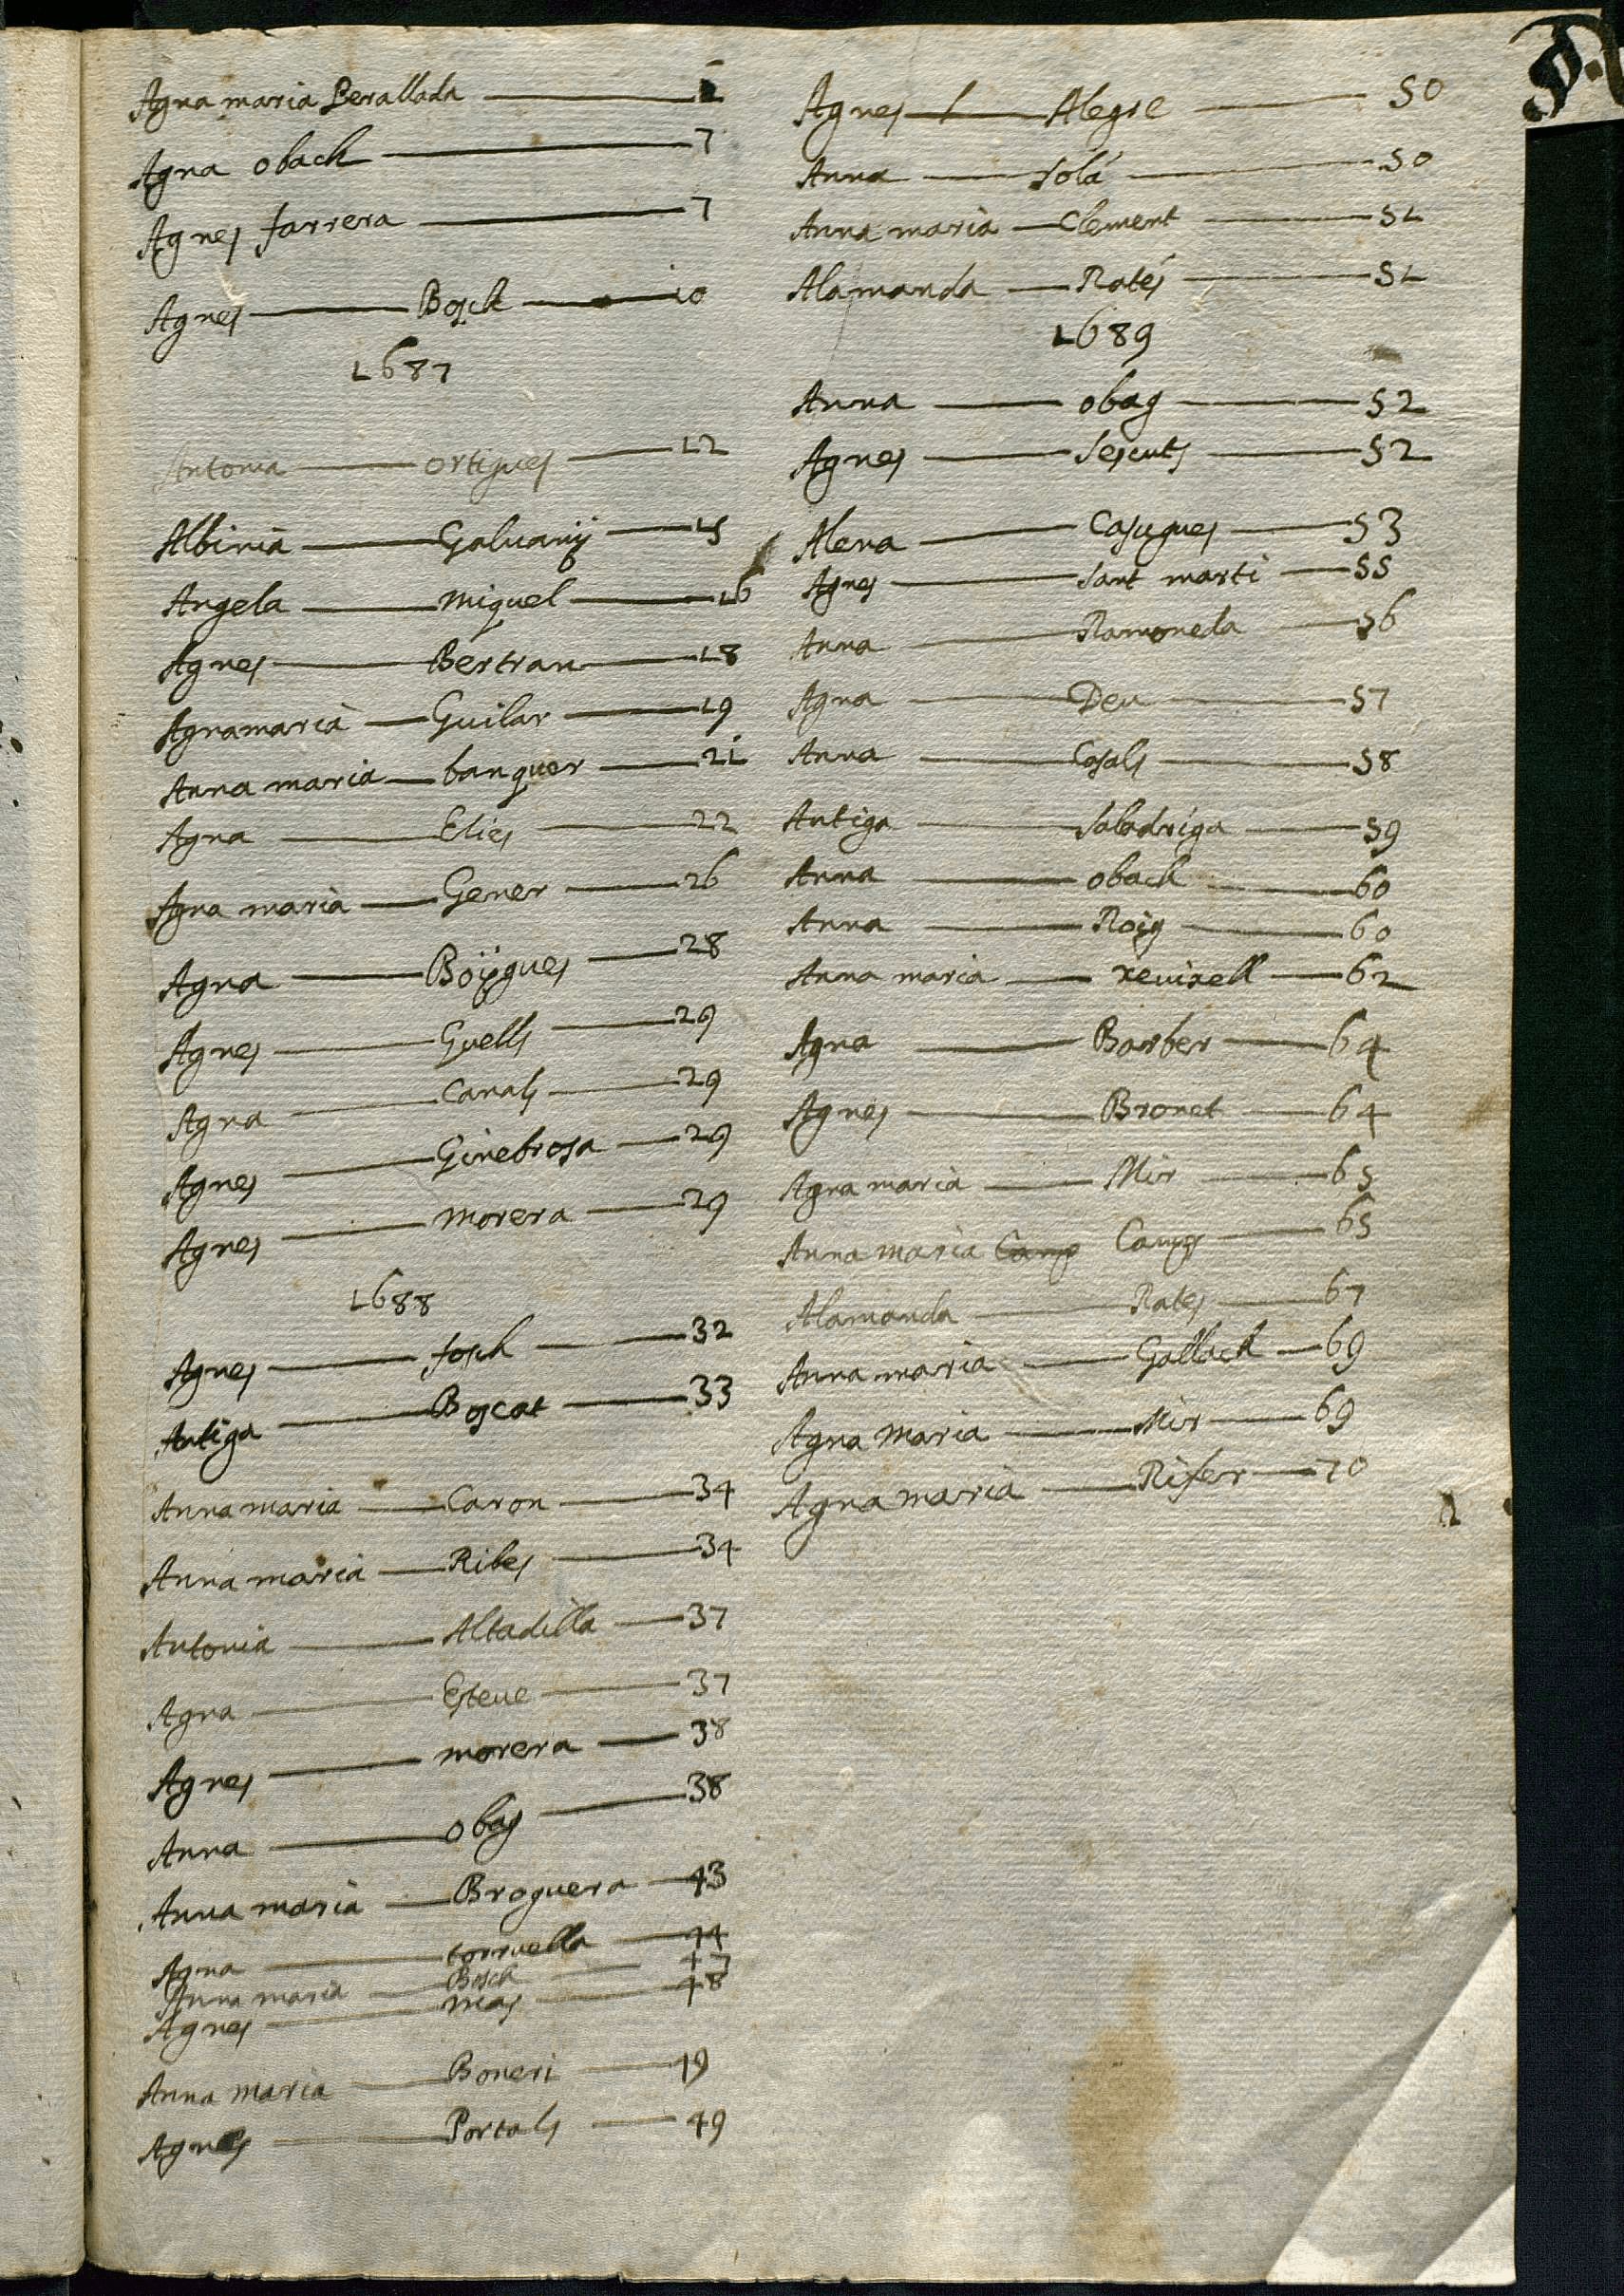 A.
Agna maria Perallada 1
Agna obach 7
Agnes farrera 7
Agnes Bosch 10
1687
Antonia ortigues 12
Albinia Galuany 15
Angela Miquel 16
Agnes Bertran 18
Agnamaria Guilar 19
Anna maria banquer 21
Agna Elies 22
Agna maria Gener 26
Agna Boÿgues 28
Agnes Guells 29
Agna Canals 29
Agnes Ginebrosa 29
Agnes morera 29
1688
Agnes fosch 32
Antiga Boscat 33
Anna maria Caron 34
Anna maria Ribes 34
Antonia Altadilla 37
Agna Esteue 37
Agnes morera 38
Anna obag 38
Anna maria Broguera 43
Agna torruella 44
Anna maria Bosch 47
Agnes mas 48
Anna maria Boneri 49
Agnes Portals 49
Agnes Alegre 50
Anna Solá 50
Anna maria Clement 51
Alamanda Ratés 51
1689
Anna obag 52
Agnes Sescuts 52
Alena Casugues 53
Agnes Sant marti 55
Anna Ramoneda 56
Agna Deu 57
Anna Casals 58
Antiga Saladriga 59
Anna obach 60
Anna Roig 60
Anna maria reuirell 62
Agna Barber 64
Agnes Bronet 64
Agna maria Mir 65
Anna maria Camp Camps 65
Alamanda Rates 67
Anna maria Gallach 69
Agna Maria Mir 69
Agna maria Rifer 70